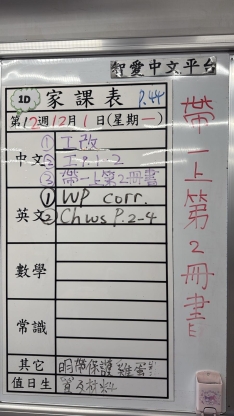 智愛中文平台
1D 家課表 P.44
第12週12月1日(星期一)
中文 ① 工改
② 工P.1-2
③ 帶一上第2冊書
英文 ① WP corr.
② Chws P.2-4
數學
常識
其它 明帶保護雞蛋
值日生
帶一上第2冊書